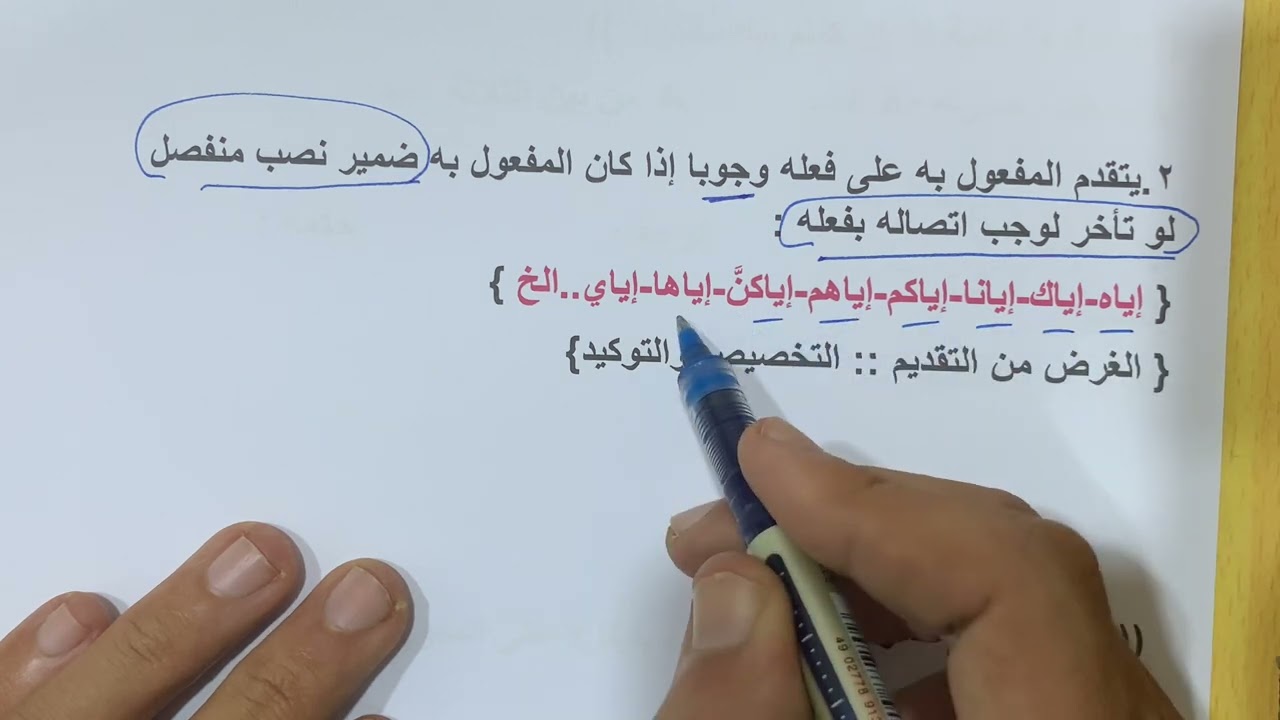 ٢.يتقدم المفعول به على فعله وجوبا إذا كان المفعول به ضمير نصب منفصل
لو تأخر لوجب اتصاله بفعله :
{ إياه-إياك-إيانا-إياكم-إياهم-إياكنَّ-إياها-إياي..الخ }
{ الغرض من التقديم :: التخصيص والتوكيد}